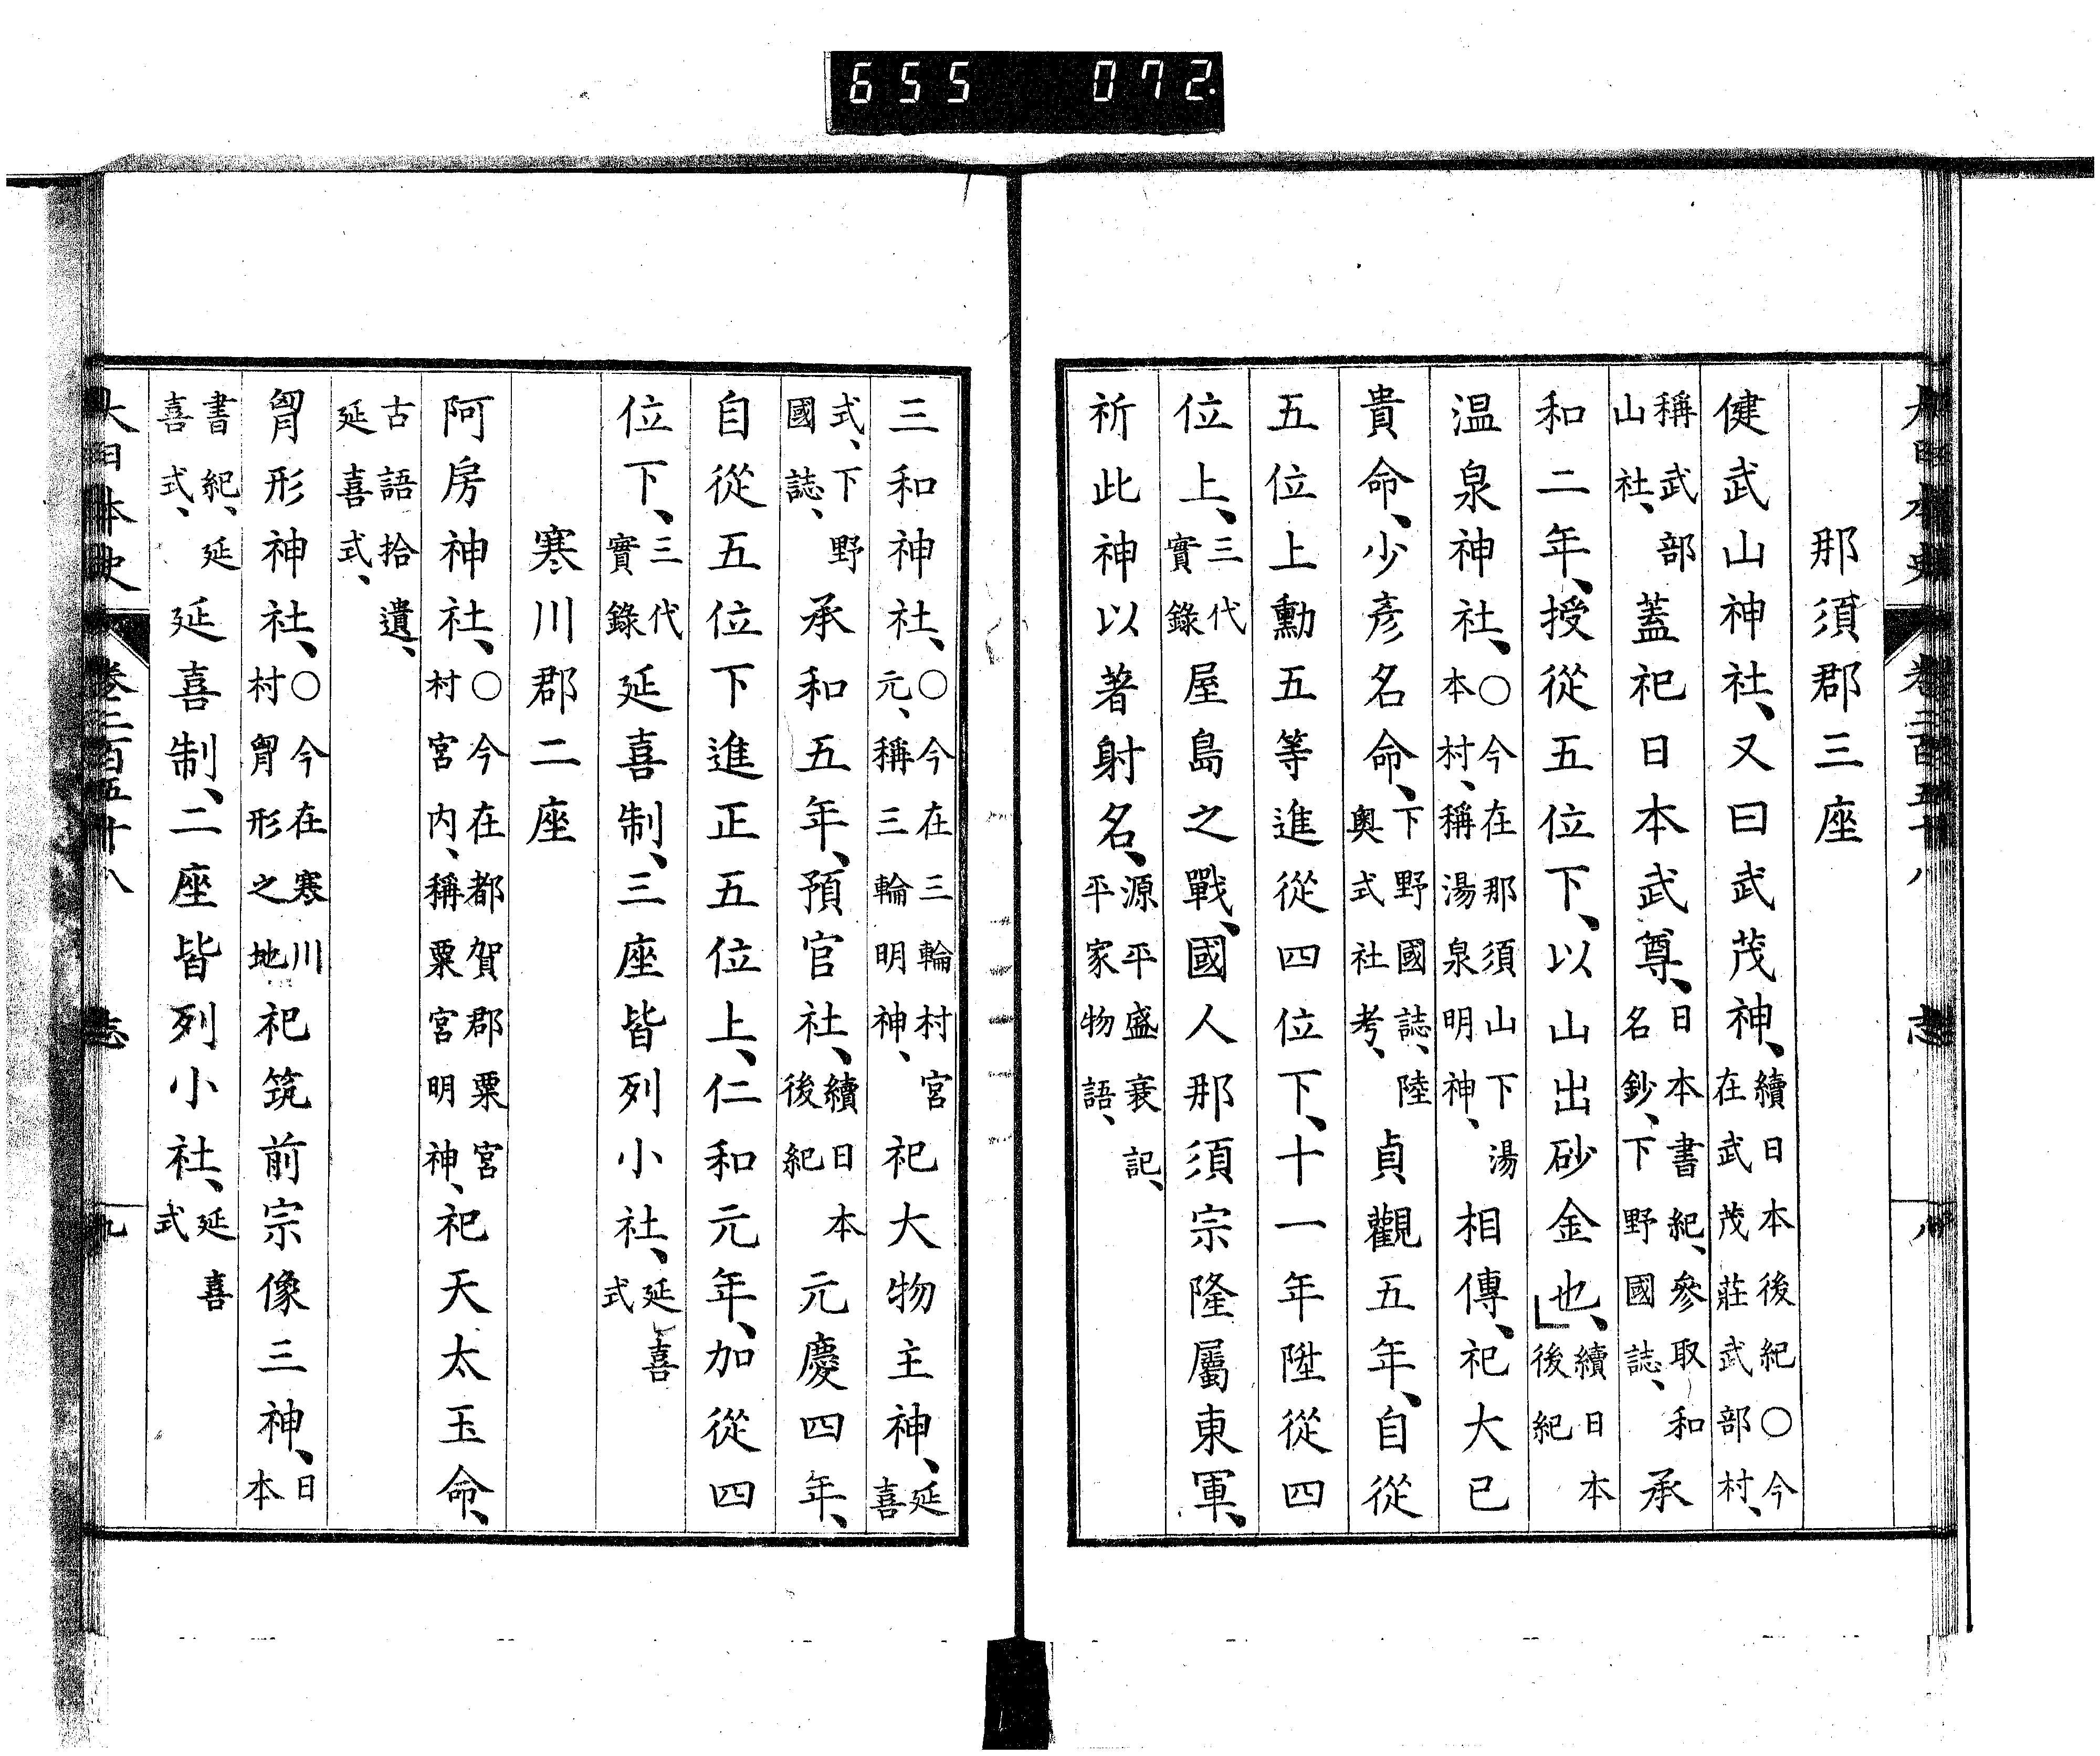 655 072.
大日本史 卷二百五十八 志 八
那須郡三座
健武山神社、又曰武茂神、續日本後紀○今在武茂莊武部村、
稱武部山社、蓋祀日本武尊、日本書紀、參取和名鈔、下野國誌、承
和二年、授從五位下、以山出砂金也、續日本後紀
温泉神社、○今在那須山下湯本村、稱湯泉明神、相傳、祀大已
貴命、少彥名命、下野國誌、陸奧式社考、貞觀五年、自從
五位上勳五等進從四位下、十一年陞從四
位上、三代實錄屋島之戰、國人那須宗隆屬東軍、
祈此神以著射名、源平盛衰記、平家物語、
三和神社、○今在三輪村宮元、稱三輪明神、祀大物主神、延喜
式、下野國誌、承和五年、預官社、續日本後紀元慶四年、
自從五位下進正五位上、仁和元年、加從四
位下、三代實錄延喜制、三座皆列小社、延喜式
寒川郡二座
阿房神社、○今在都賀郡粟宮村宮內、稱粟宮明神、祀天太玉命、
古語拾遺、延喜式、
胷形神社、○今在寒川村胷形之地祀筑前宗像三神、日本
書紀、延喜式、延喜制、二座皆列小社、延喜式
大日本史 卷二百五十八 志 九